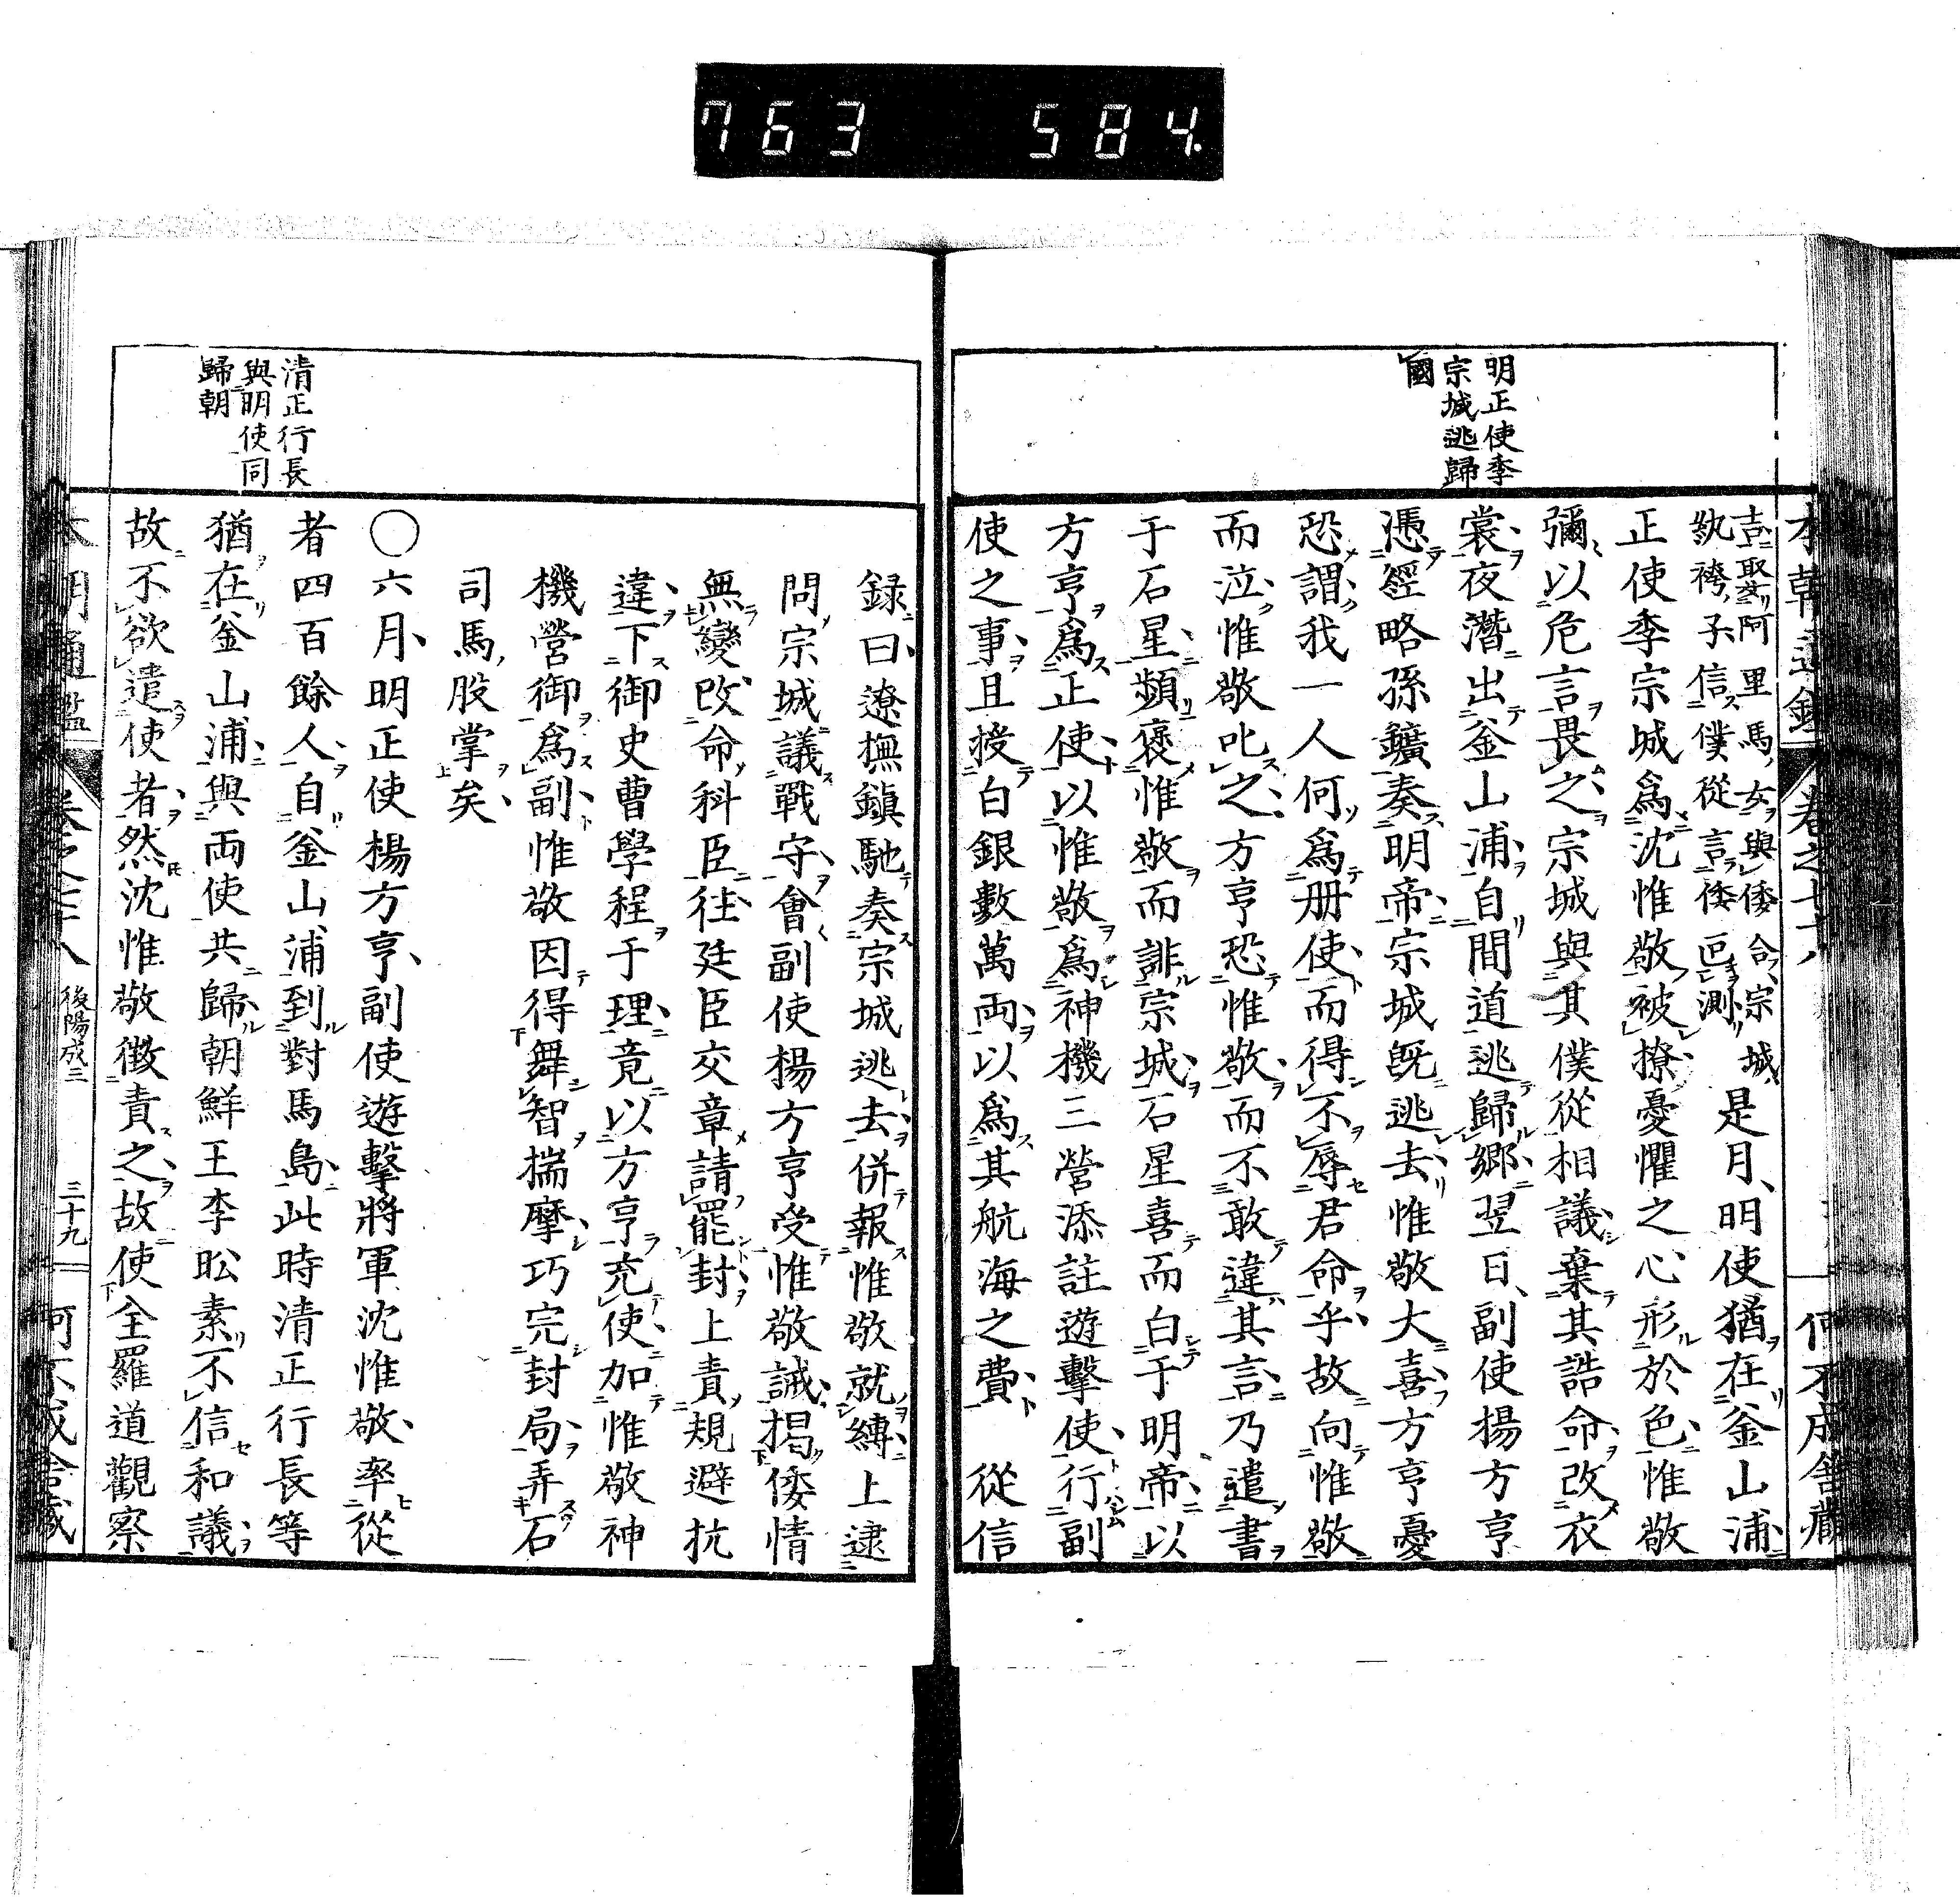 763 584.
明正使李
宗城逃歸
國
吉取妾阿里馬女與倭合宗城
紈袴子信僕從言倭叵測
是月明使猶在釜山浦
正使李宗城爲沈惟敬被撩憂懼之心形於色惟敬
彌以危言畏之宗城與其僕從相議棄其誥命改衣
裳夜潛出釜山浦自間道逃歸鄉翌日副使揚方亨
憑經略孫鑛奏明帝宗城既逃去惟敬大喜方亨憂
恐謂我一人何爲册使而得不辱君命乎故向惟敬
而泣惟敬叱之方亨恐惟敬而不敢違其言乃遣書
于石星頻褒惟敬而誹宗城石星喜而白于明帝以
方亨爲正使以惟敬爲神機三營添註遊擊使行副
使之事且授白銀數萬両以爲其航海之費 從信
録曰遼撫鎮馳奏宗城逃去併報惟敬就縛上逮
問宗城議戰守會副使揚方亨受惟敬誡揭倭情
無變改命科臣往廷臣交章請罷封上責規避抗
違下御史曹學程于理竟以方亨充使加惟敬神
機營御爲副惟敬因得舞智揣摩巧完封局弄石
司馬股掌矣
清正行長
與明使同
歸朝
〇六月明正使楊方亨副使遊擊將軍沈惟敬率從
者四百餘人自釜山浦到對馬島此時清正行長等
猶在釜山浦與両使共歸朝鮮王李昖素不信和議
故不欲遣使者然沈惟敬徴責之故使全羅道觀察
後陽成三
三十九